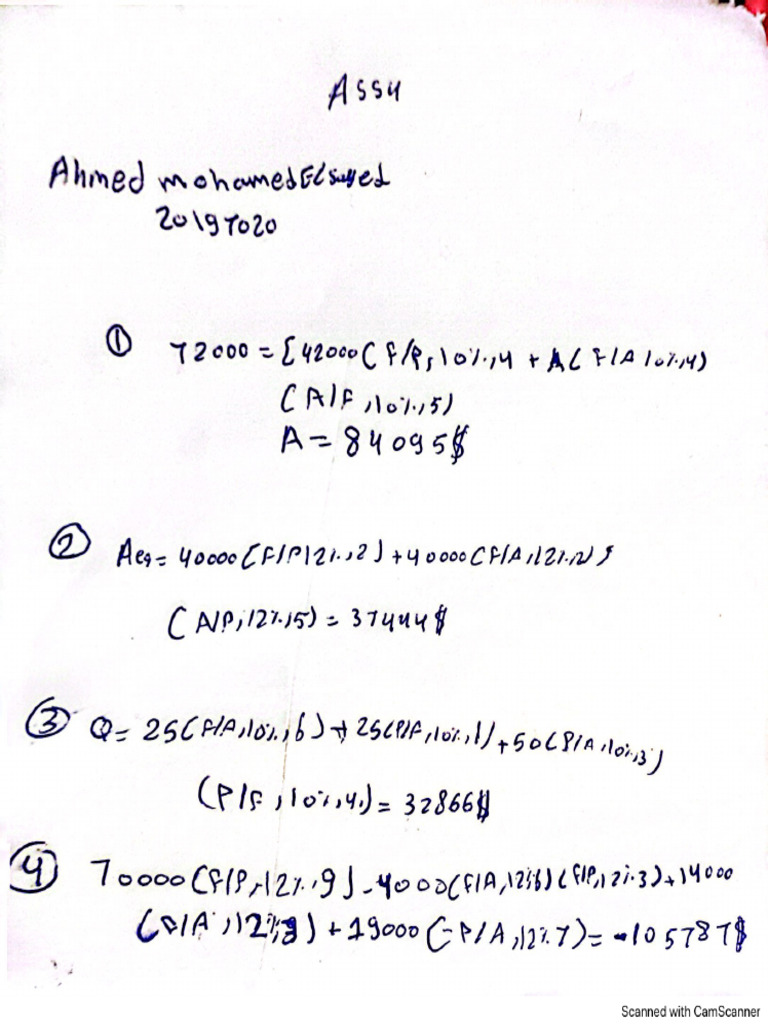 Ass4
Ahmed mohamed Elsayed
20197020
① 72000 = [42000(F/P,10%,4 + A(F/A 10%,4)
(A/F,10%,5)
A = 84095$
② Aeq = 40000(F/P12%,2) + 40000(F/A,12%,2)
(A/P,12%,5) = 37444$
③ Q = 25(F/A,10%,6) + 25(P/F,10%,1) + 50(P/A,10%,3)
(P/F,10%,4) = 32866$
④ 70000(F/P,12%,9) - 4000(F/A,12%6)(F/P,12%.3) + 14000
(F/A,12%,3) + 19000(-P/A,12%7) = -105787$
Scanned with CamScanner